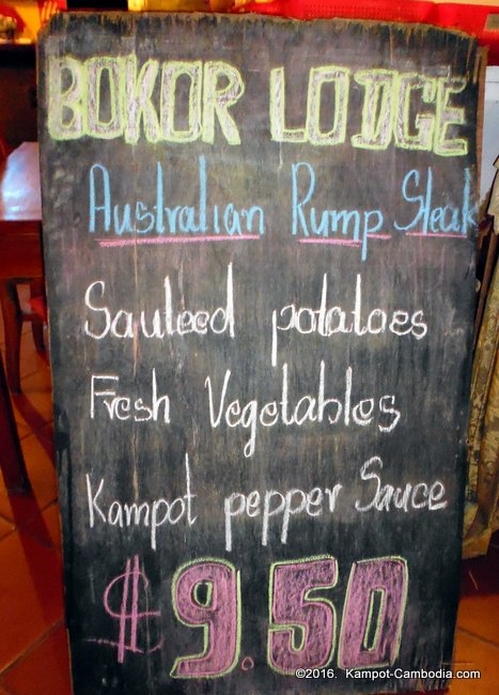 BOKOR LODGE
Australian Rump Steak
Sauteed potatoes
Fresh Vegetables
Kampot pepper Sauce
$9.50
©2016. Kampot-Cambodia.com